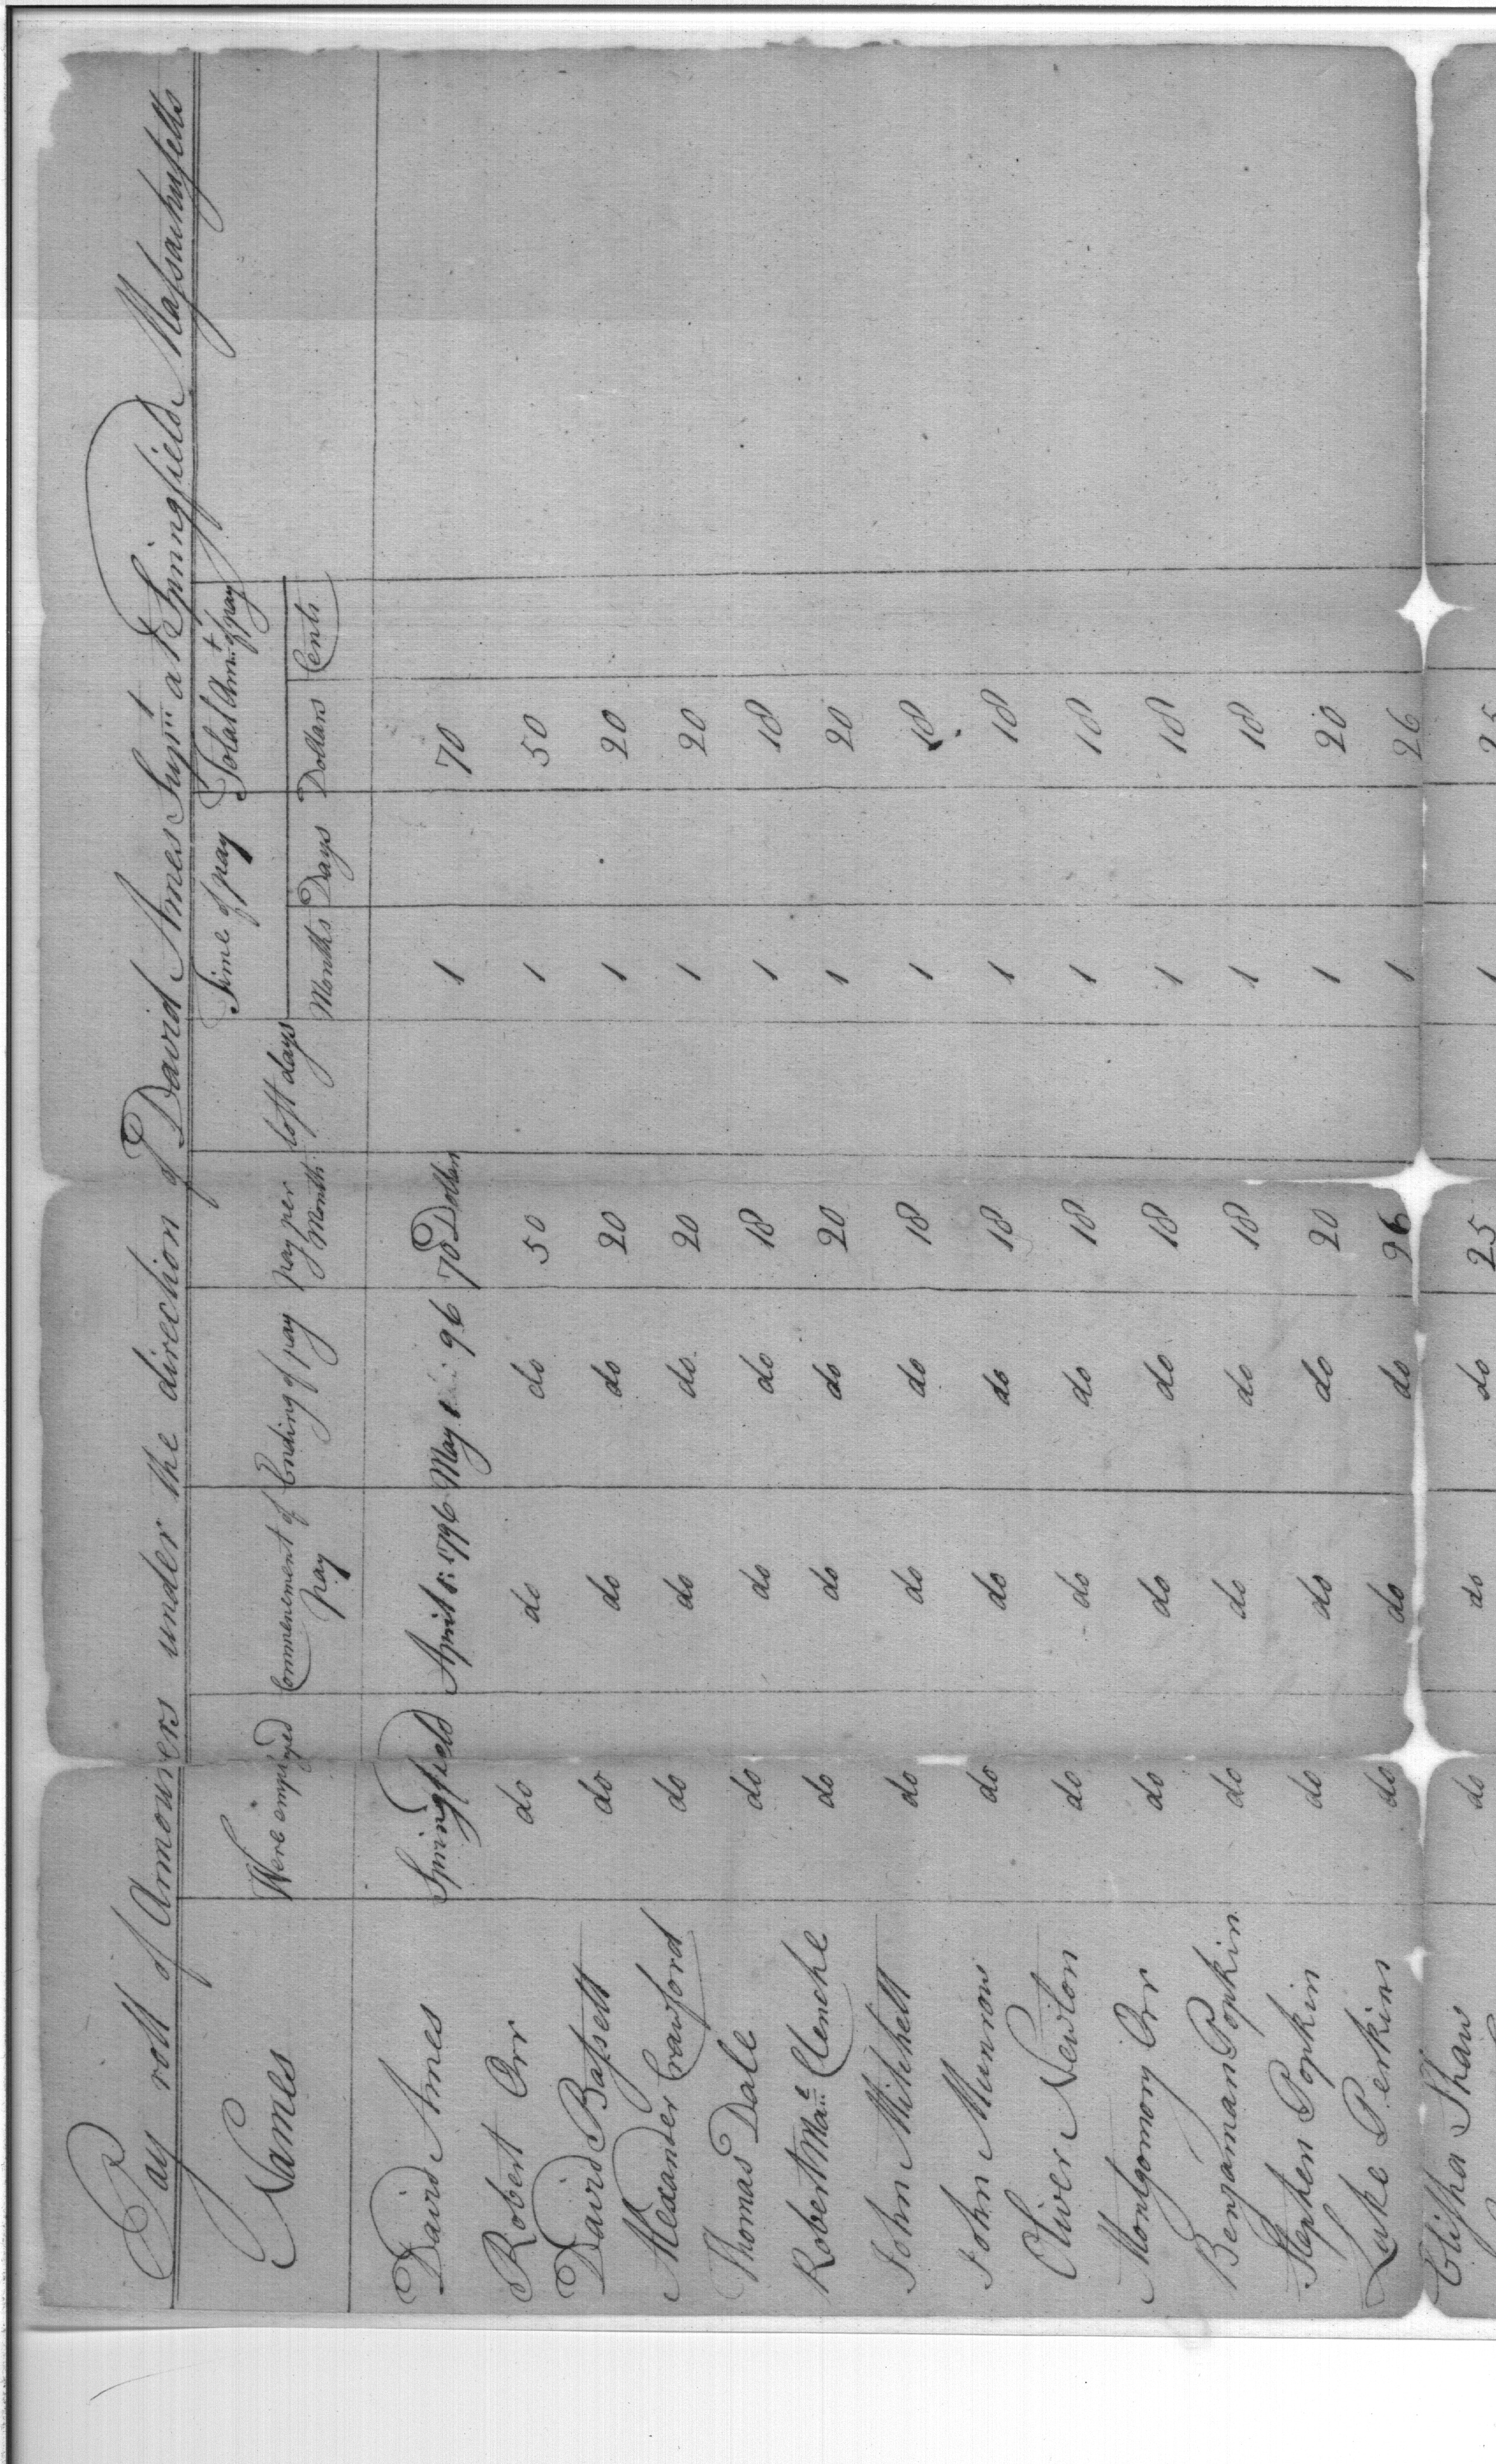 Pay roll of Armourers under the direction of David Ames Supr<sup>t</sup> at Springfield Massachusetts
Names Were employed Commenement of pay Ending of pay pay per Month lost days Time of pay Total Amt of pay
Months Days Dollars Cents
David Ames Springfield April 1: 1796 May 96 70 Dollars 1 70
Robert Orr do do do 50 1 50
David Bassett do do do 20 1 20
Alexander Crawford do do do 20 1 20
Thomas Dale do do do 18 1 18
Robert Clenche do do do 20 1 20
John Mitchell do do do 18 1 18
John Munrow do do do 18 1 18
Oliver Newton do do do 18 1 18
Montgomory Orr do do do 18 1 18
Bengaman Popkin do do do 18 1 18
Stephen Popkin do do do 20 1 20
Luke Perkins do do do 26 1 26
Elisha Shaw do do do 25 1 25